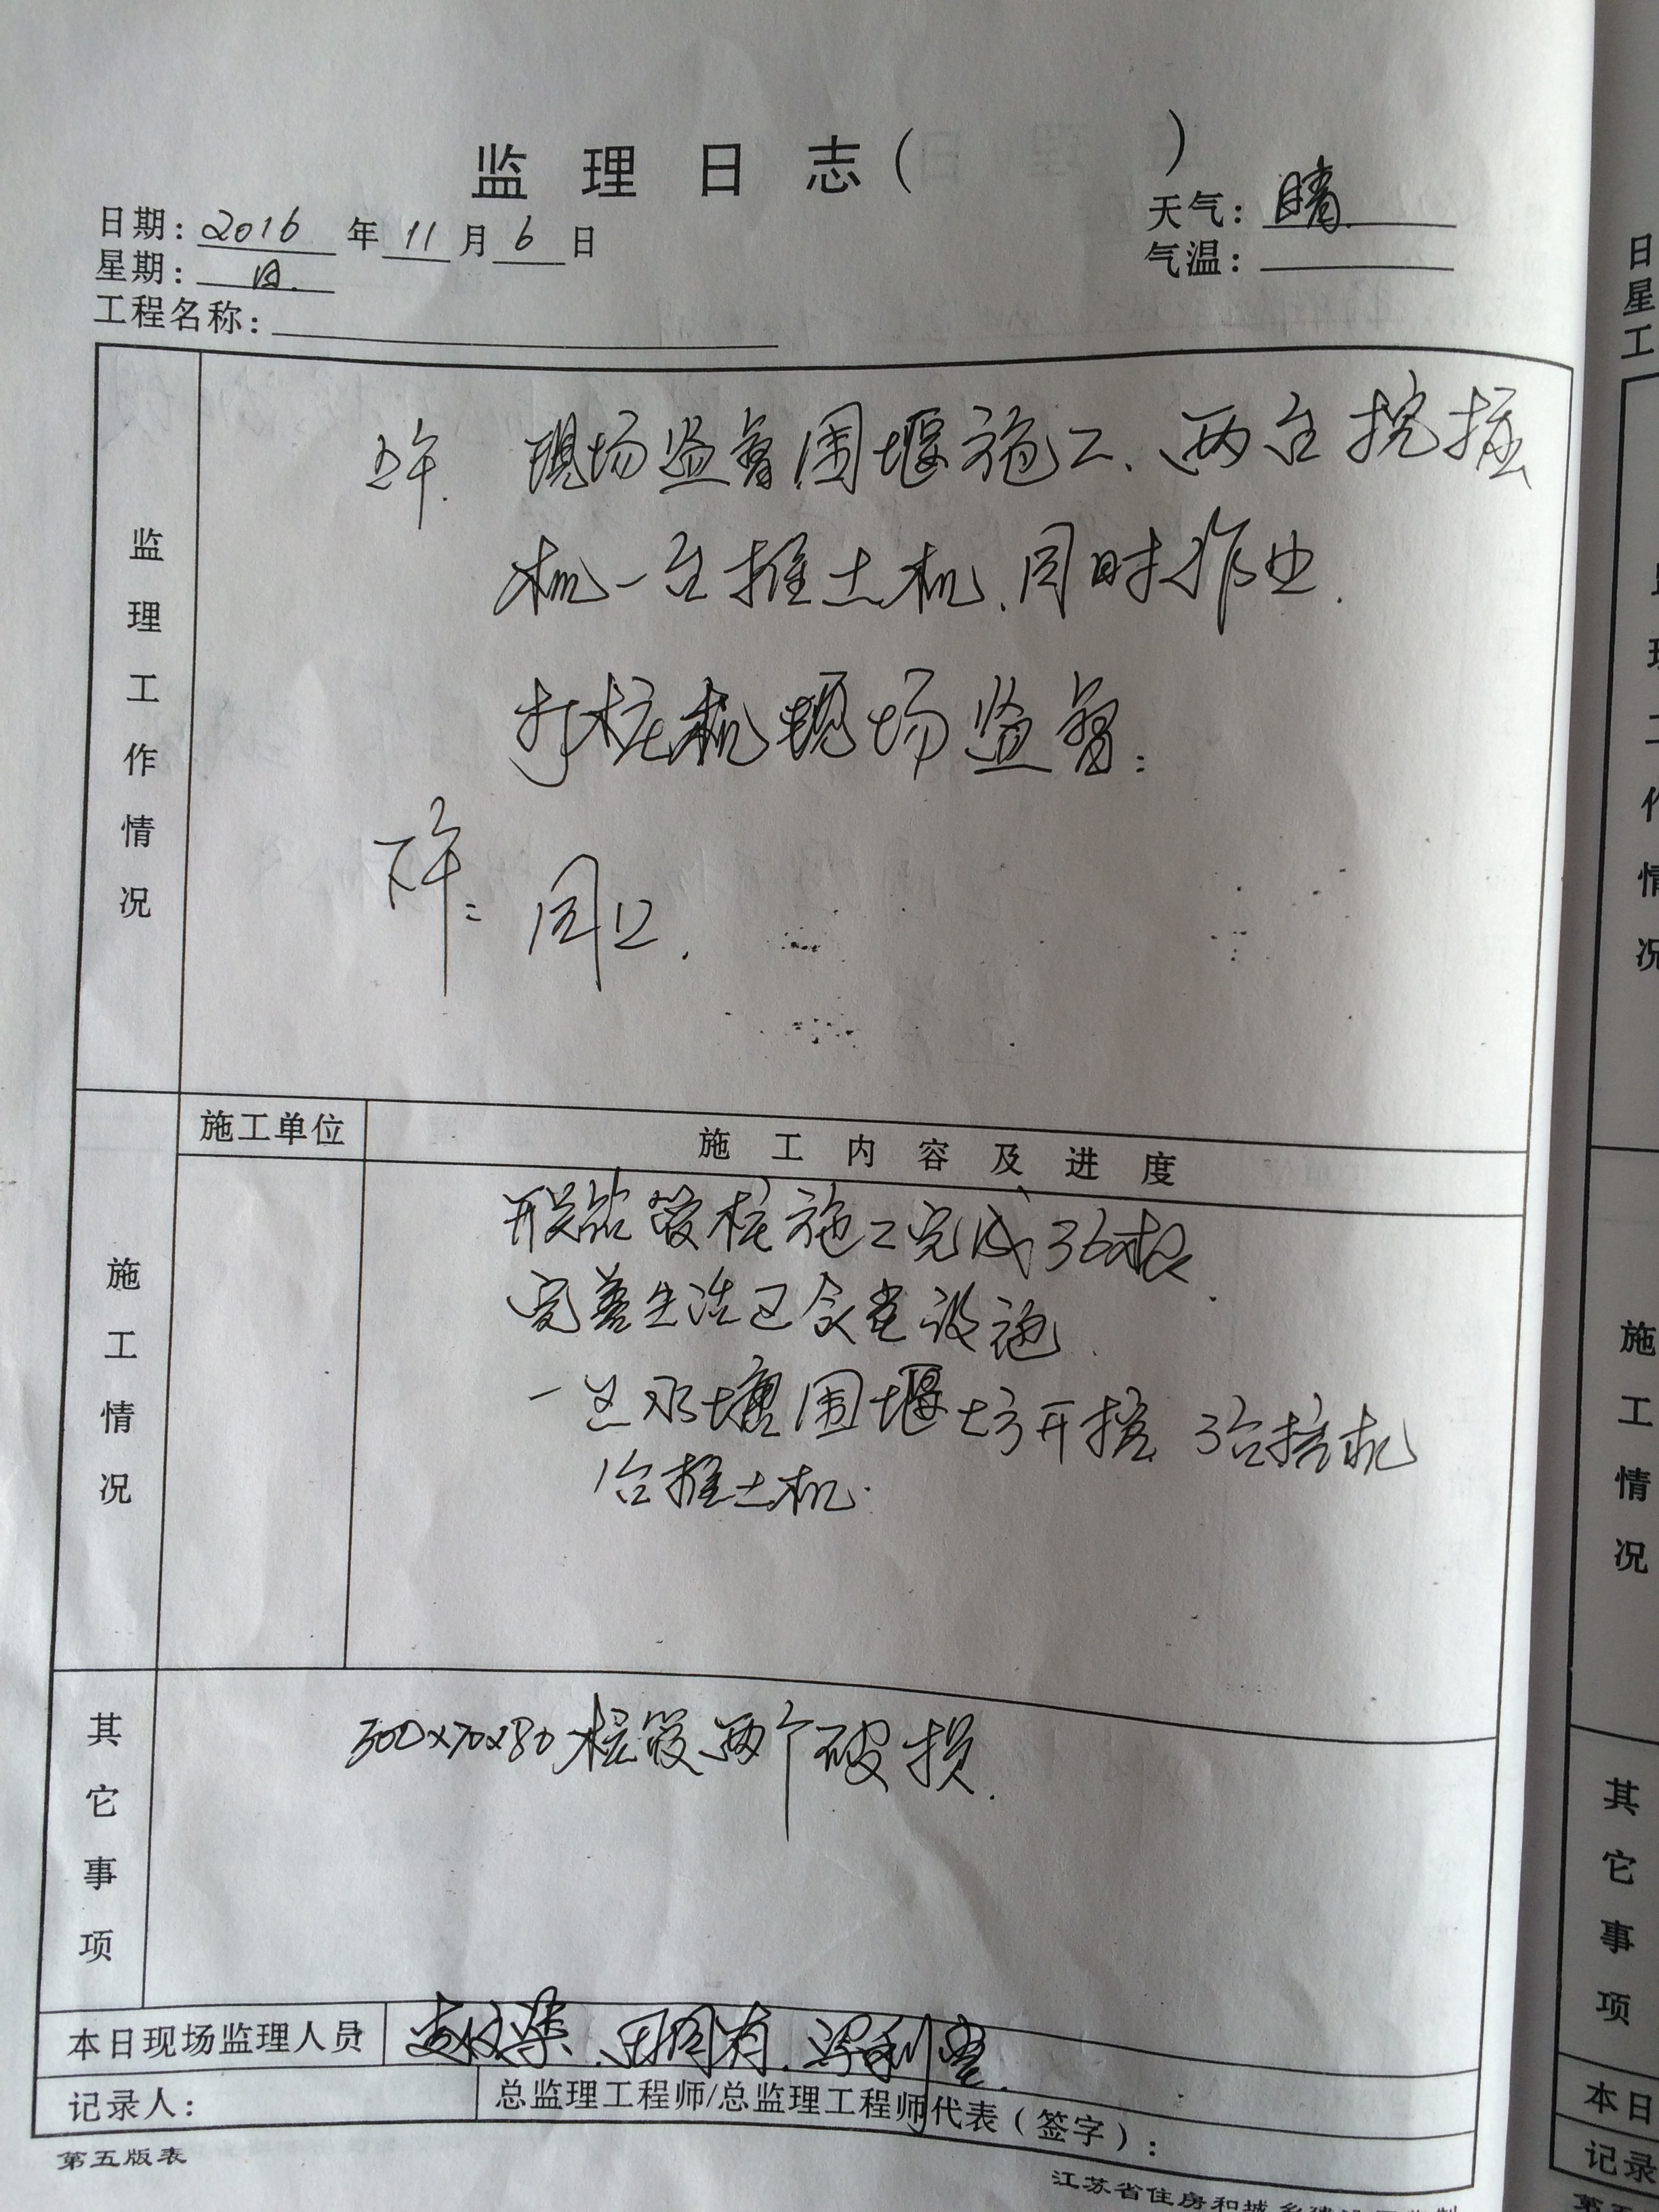 监理日志( )
日期: 2016 年 11 月 6 日
天气: 晴
星期: 日.
气温:
工程名称:
监理工作情况
上午. 现场监督围堰施工、两台挖掘
机一台推土机.同时作业.
打桩机现场监督:
下午: 同上.
施工情况
施工单位
施工内容及进度
管桩施工完成36根.
完善生活区食堂设施.
一 水塘围堰 开挖 3台挖机
1台推土机.
其它事项
500x70x80桩管两个破损.
本日现场监理人员
记录人:
总监理工程师/总监理工程师代表(签字):
第五版表
江苏省住房和城乡建设
日
星
工
理
工
作
情
况
施
工
情
况
其
它
事
项
本日
记录